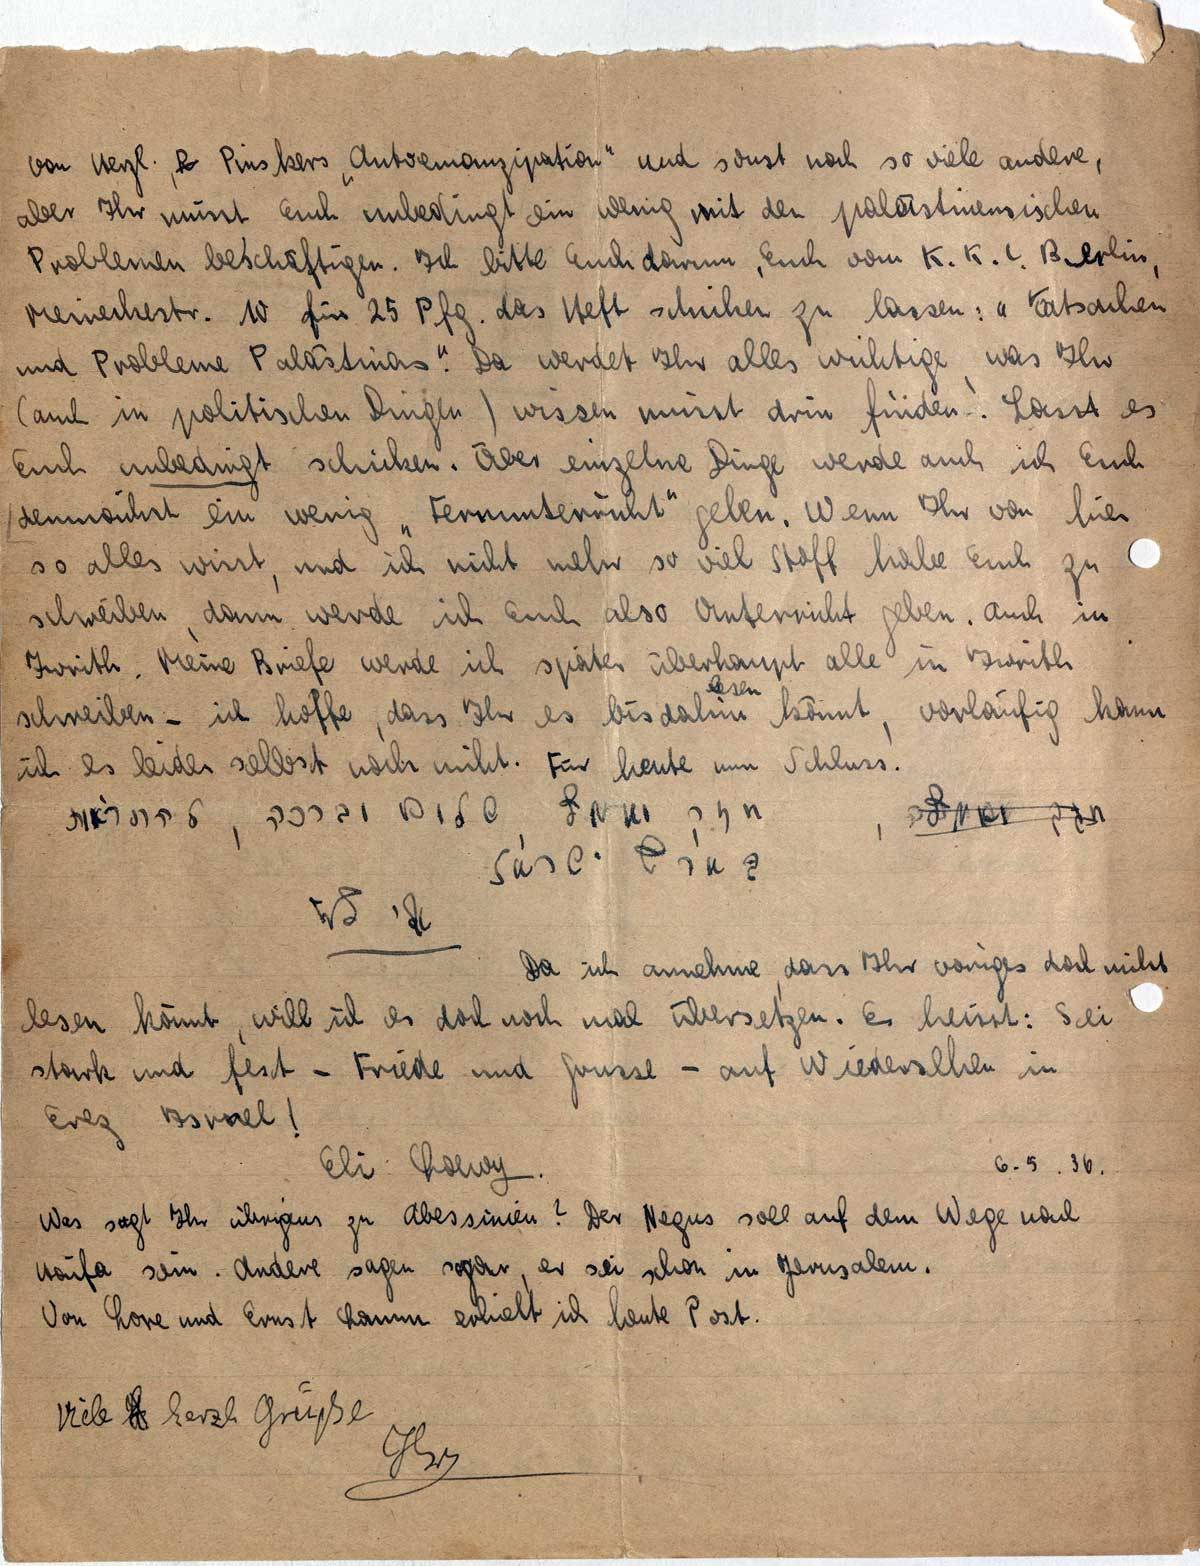 von Herzl, Pinskers „Autoemanzipation“ und sonst noch so viele andere,
aber Ihr müsst Euch unbedingt ein wenig mit den palästinensischen
Problemen beschäftigen. Ich bitte Euch darum, Euch vom K. K. L. Berlin,
Meinekestr. 10 für 25 Pfg. das Heft schicken zu lassen: „Tatsachen
und Probleme Palästinas“. Da werdet Ihr alles wichtige, was Ihr
(auch in politischen Dingen) wissen müsst drin finden! Lasst es
Euch unbedingt schicken. Über einzelne Dinge werde auch ich Euch
demnächst ein wenig „Fernunterricht“ geben. Wenn Ihr von hier
so alles wisst, und ich nicht mehr so viel Stoff habe Euch zu
schreiben, dann werde ich Euch also Unterricht geben. Auch in
Iwrith. Meine Briefe werde ich später überhaupt alle in Iwrith
schreiben – ich hoffe, dass Ihr es bis dahin lesen könnt, vorläufig kann
ich es leider selbst noch nicht. Für heute nun Schluss.
חזק ואמץ, שלום וברכה, להתראות
בארץ ישראל
אלי
Da ich annehme, dass Ihr voriges doch nicht
lesen könnt, will ich es doch noch mal übersetzen. Es heisst: Sei
stark und fest – Friede und Grusse – auf Wiedersehen in
Erez Israel!
Eli Loewy. 6.5.36.
Was sagt Ihr übrigens zu Abessinien? Der Negus soll auf dem Wege nach
Haifa sein. Andere sagen sogar, er sei schon in Jerusalem.
Von Lore und Ernst Lamm erhielt ich heute Post.
Viele herzl Grüße